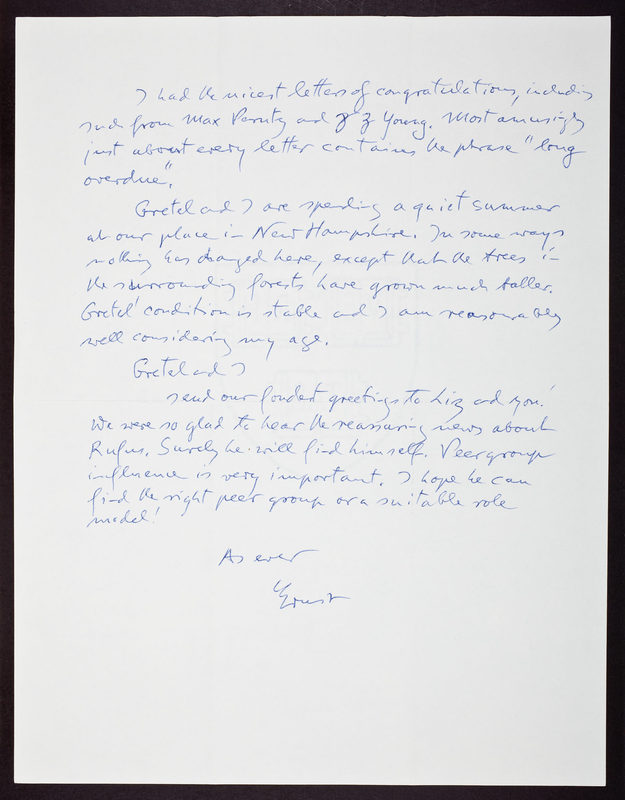 I had the nicest letters of congratulations, including
such from Max Perutz and J Z Young. Most amusingly
just about every letter contains the phrase "long
overdue".
Gretel and I are spending a quiet summer
at our place in New Hampshire. In some ways
nothing has changed here, except that the trees in
the surrounding forests have grown much taller.
Gretel' condition is stable and I am reasonably
well considering my age.
Gretel and I
send our fondest greetings to Liz and you!
We were so glad to hear the reassuring news about
Rufus. Surely he will find himself. Peer group
influence is very important. I hope he can
find the right peer group or a suitable role
model!
As ever
Ernst